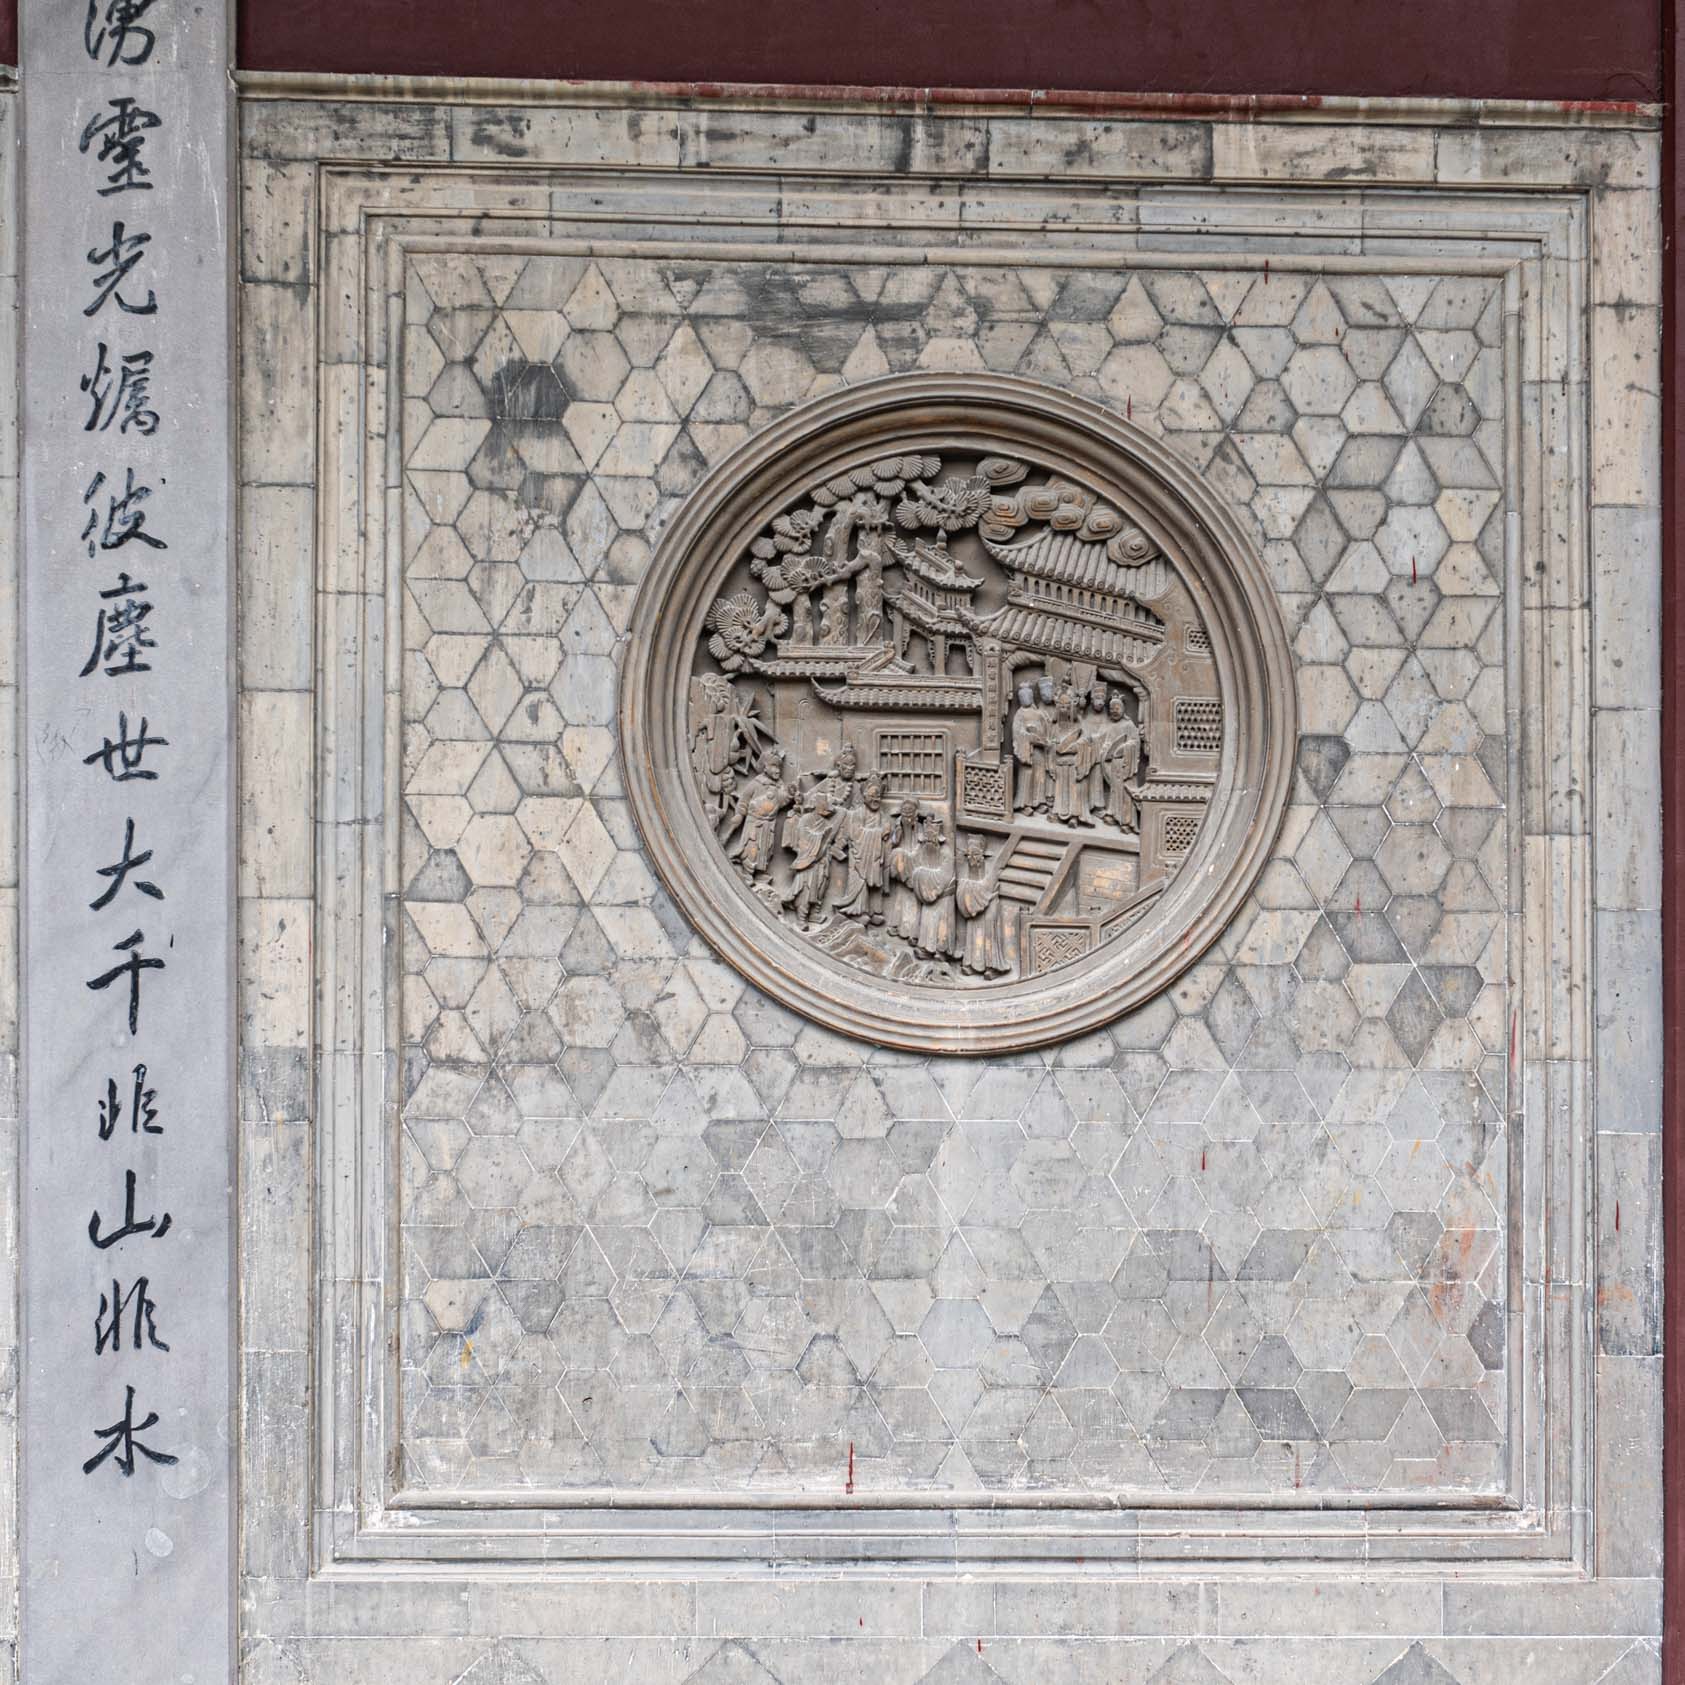 湧霊光爥彼塵世大千非山非水